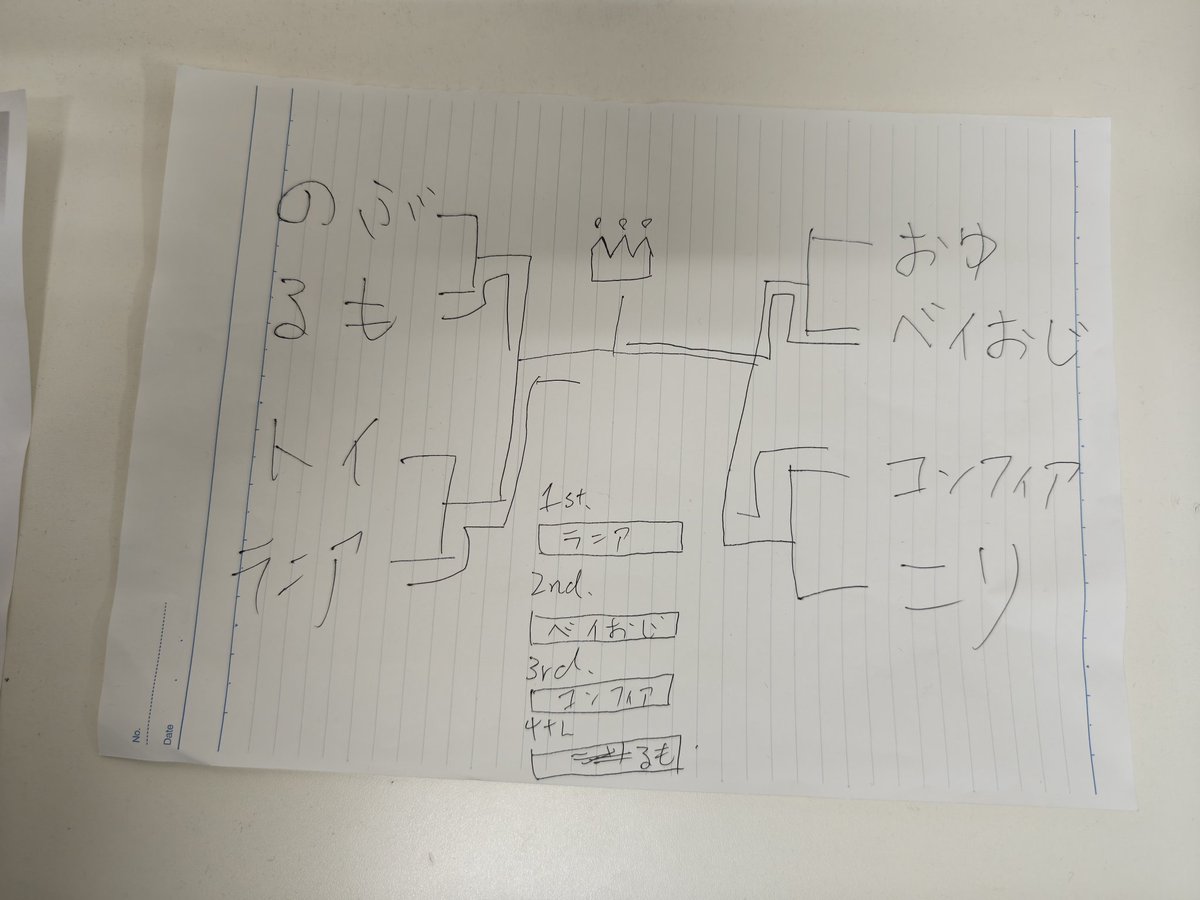 のぶ
るも
トイ
ラニア
おゆ
ベイおじ
コンフィア
ニリ
1st.
ラニア
2nd.
ベイおじ
3rd.
コンフィア
4th
るも
No.
Date